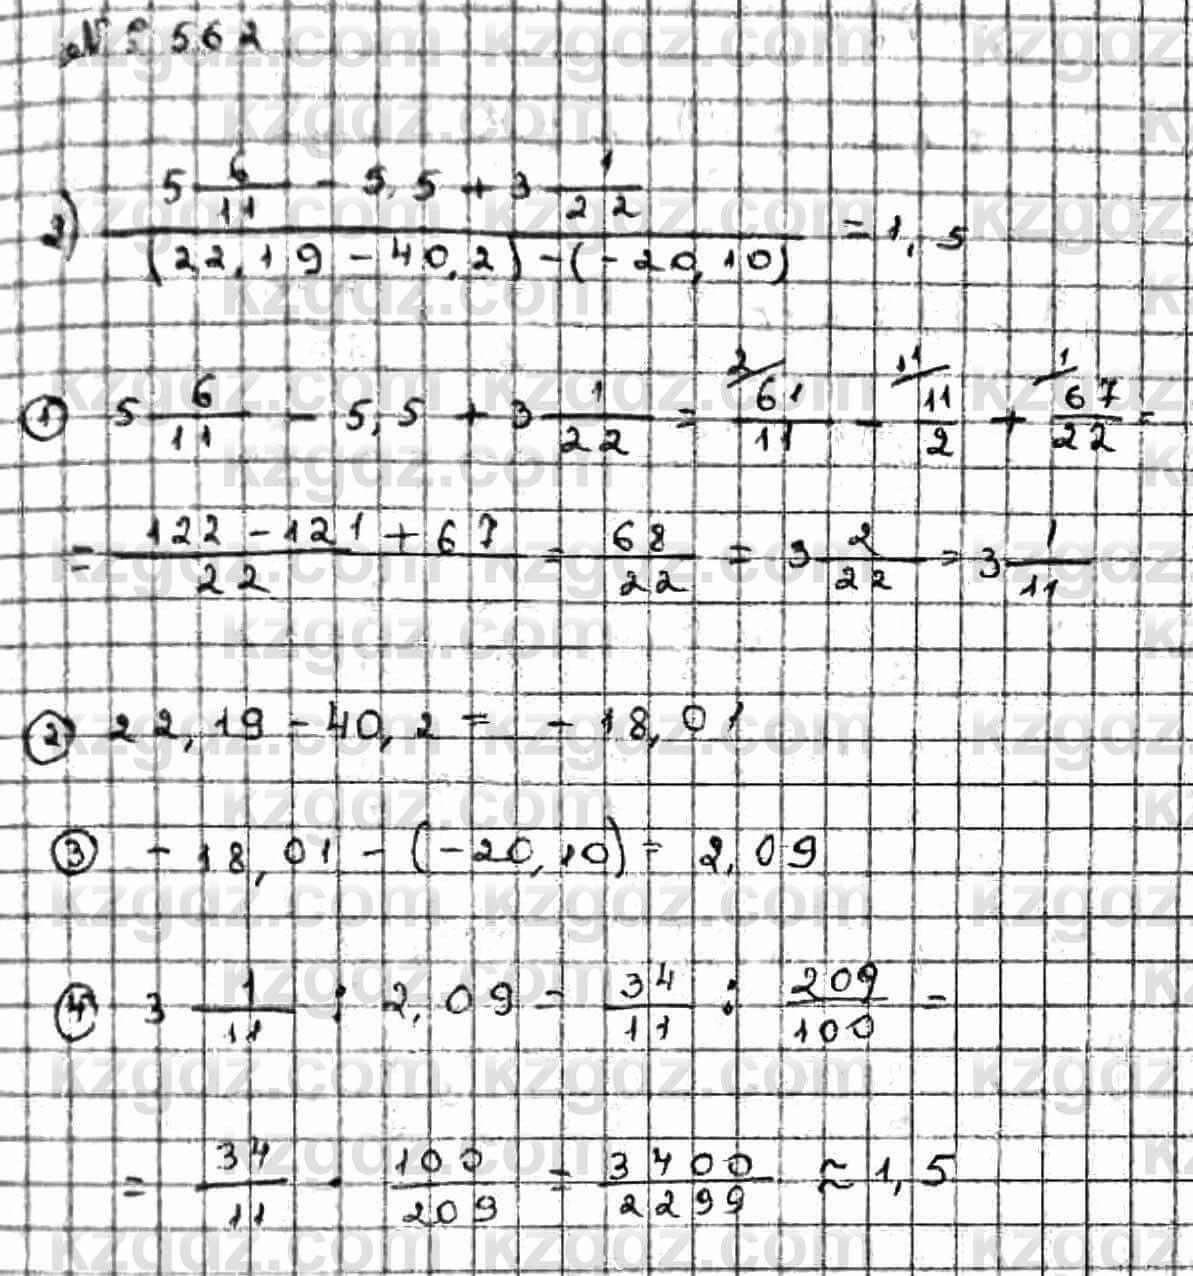 № 562
2) (5 6/11 - 5,5 + 3 1/22) / ((22,19 - 40,2) - (-20,10)) = 1,5
① 5 6/11 - 5,5 + 3 1/22 = 2/ 61/11 - 11/ 11/2 + 1/ 67/22 =
= (122 - 121 + 67)/22 = 68/22 = 3 2/22 = 3 1/11
② 22,19 - 40,2 = -18,01
③ -18,01 - (-20,10) = 2,09
④ 3 1/11 : 2,09 = 34/11 : 209/100 =
= 34/11 · 100/209 = 3400/2299 ≈ 1,5
kzgdz.com